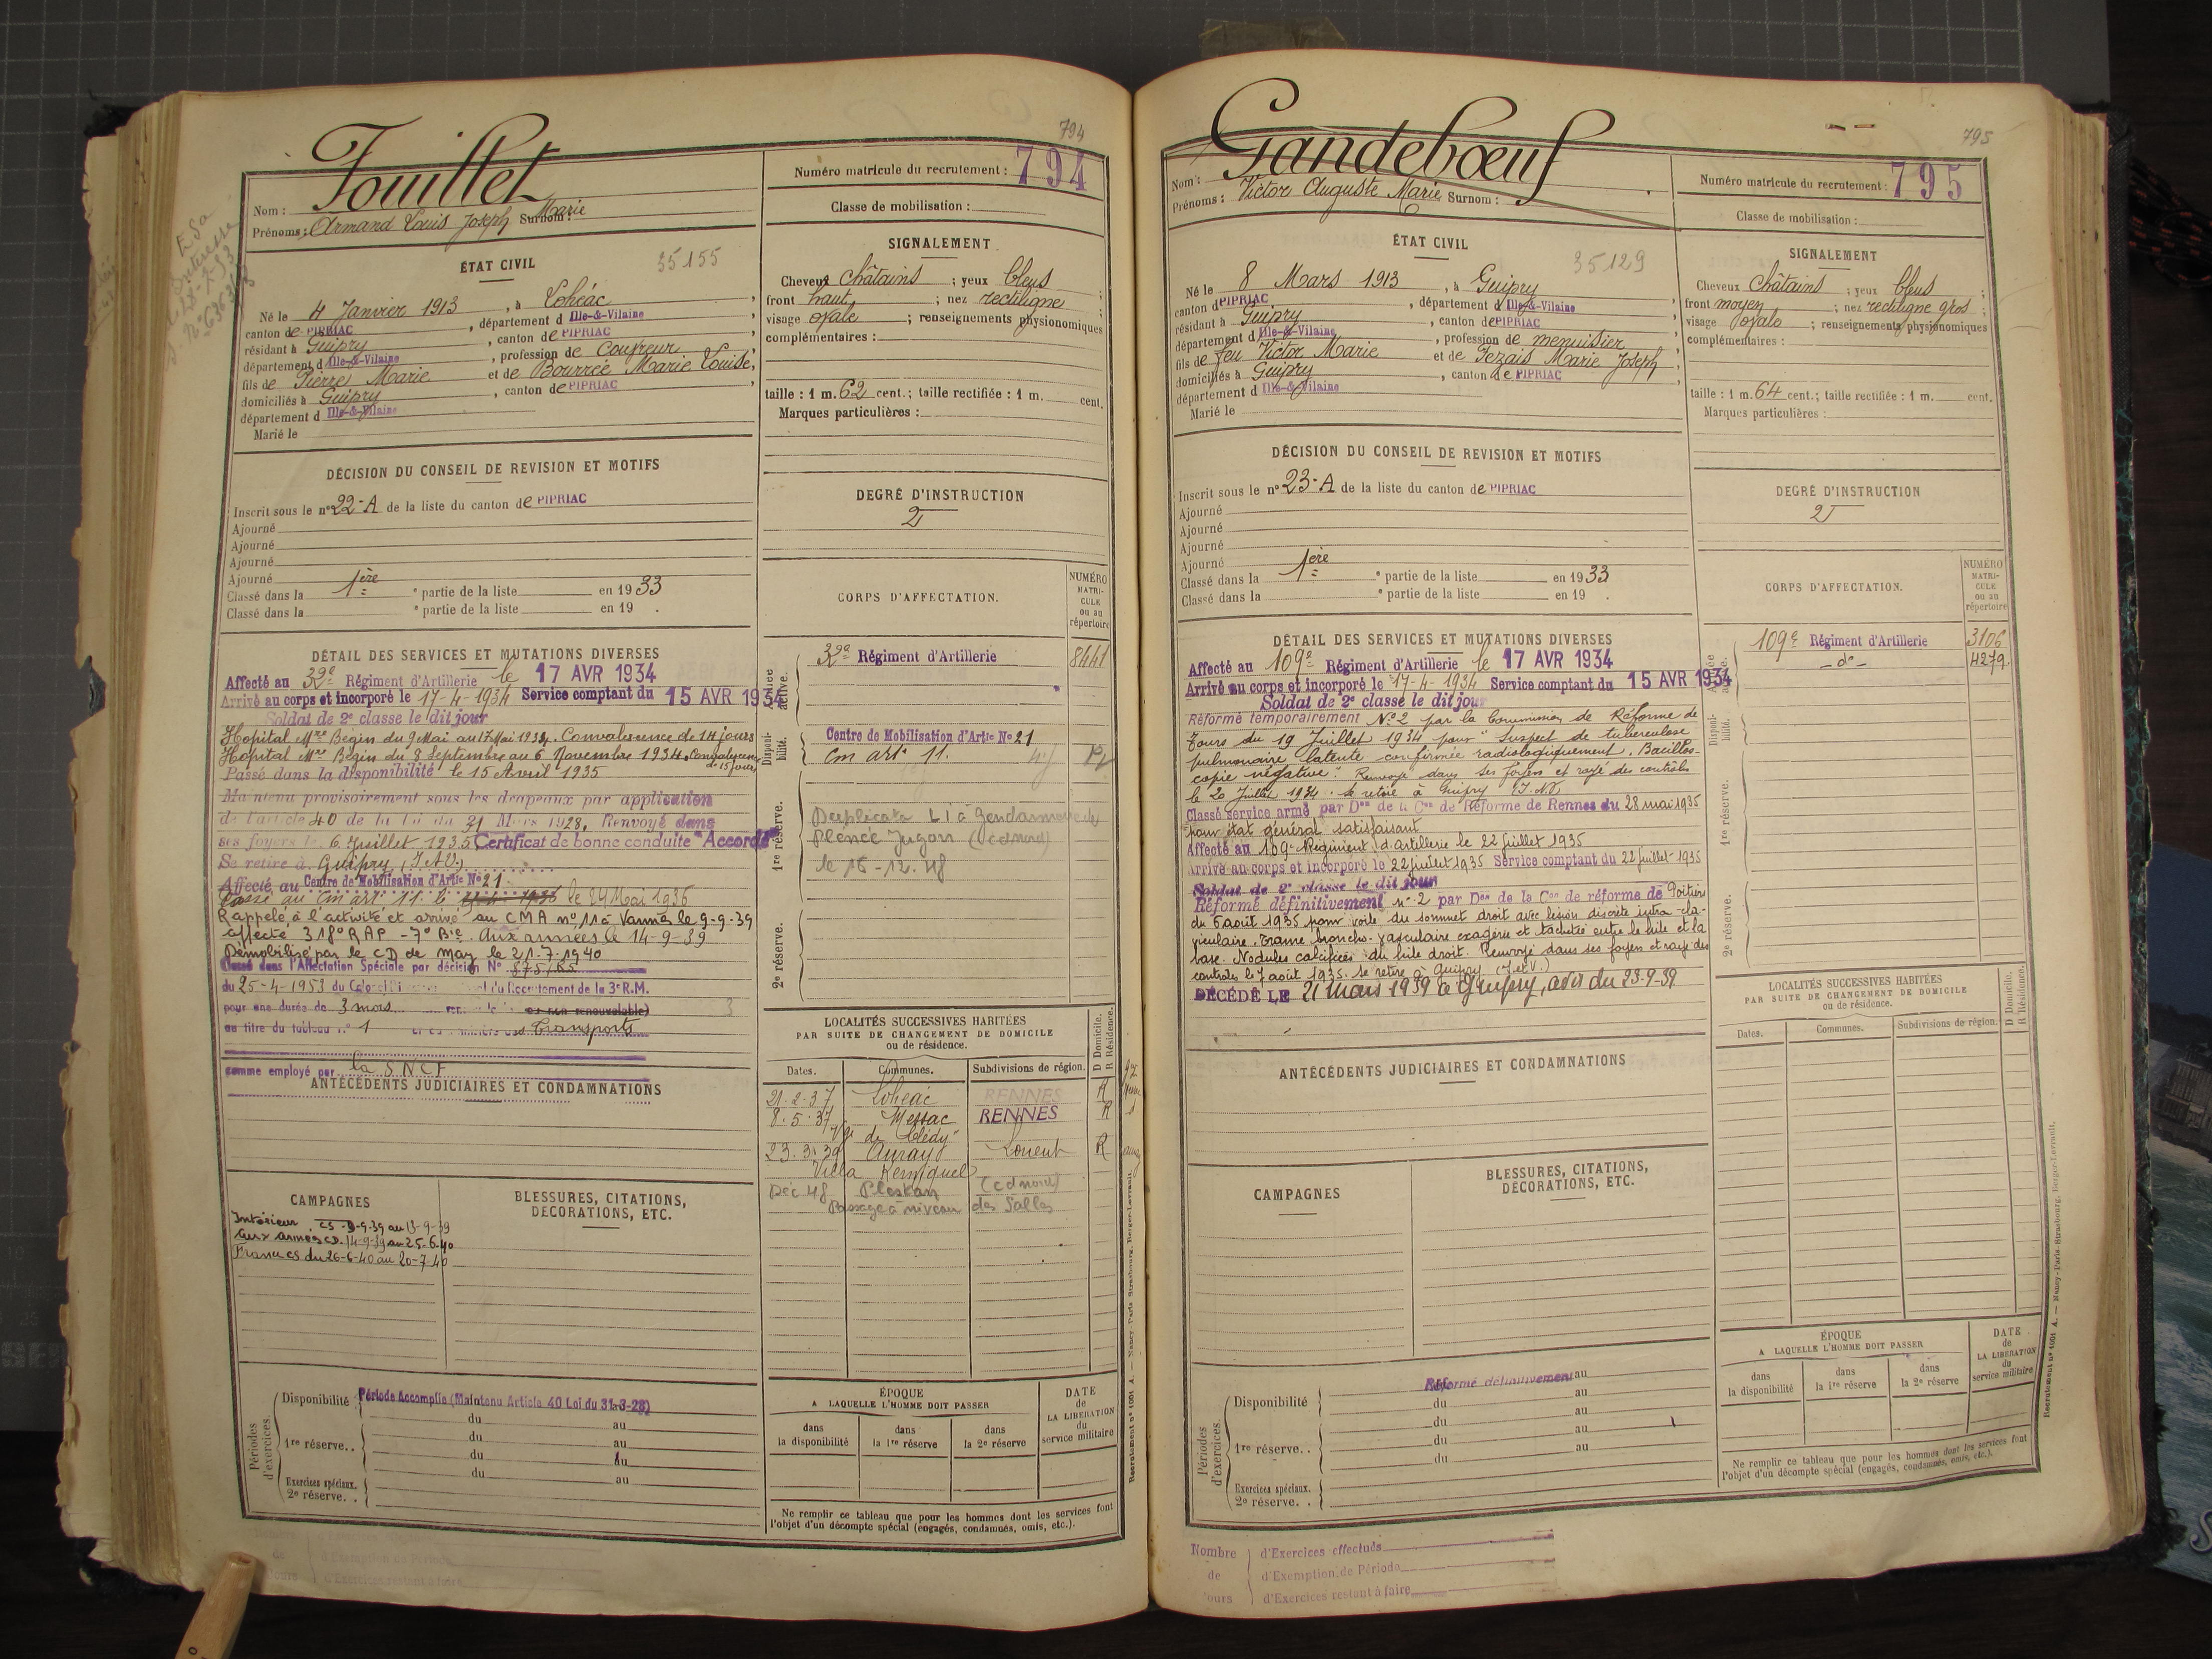 794
Fouillet
Nom :
Prénoms : Armand Louis Joseph Marie Surnom :
Numéro matricule du recrutement : 794
Classe de mobilisation :
ÉTAT CIVIL
35155
Né le 4 Janvier 1913, à Lohéac,
canton de PIPRIAC, département d Ille-&-Vilaine
résidant à Guipry, canton de PIPRIAC
département d Ille-&-Vilaine, profession de Couvreur
fils de Pierre Marie et de Bourrée Marie Louise,
domiciliés à Guipry, canton de PIPRIAC
département d Ille-&-Vilaine
Marié le
SIGNALEMENT
Cheveux châtains ; yeux bleus ;
front haut ; nez rectiligne
visage ovale ; renseignements physionomiques
complémentaires :
taille : 1 m. 62 cent. ; taille rectifiée : 1 m. cent.
Marques particulières :
DÉCISION DU CONSEIL DE REVISION ET MOTIFS
Inscrit sous le n° 22-A de la liste du canton de PIPRIAC
Ajourné
Ajourné
Ajourné
Ajourné
Classé dans la 1ère e partie de la liste en 1933
Classé dans la e partie de la liste en 19 .
DEGRÉ D'INSTRUCTION
2
CORPS D'AFFECTATION.
NUMÉRO MATRI-CULE ou au répertoire
Armée active.
32e Régiment d'Artillerie 8441
Disponi-bilité.
Centre de Mobilisation d'Artie N° 21
Cm art. 11.
1re réserve.
Duplicata L1 à Gendarmerie de
Plénée Jugon (Cdnord)
le 16-12-48
2e réserve.
DÉTAIL DES SERVICES ET MUTATIONS DIVERSES
Affecté au 32e Régiment d'Artillerie le 17 AVR 1934
Arrivé au corps et incorporé le 17-4-1934 Service comptant du 15 AVR 1934
Soldat de 2e classe le dit jour
Hopital Mre Bégin du 9 Mai au 17 Mai 1934. Convalescence de 14 jours
Hopital Mre Bégin du 8 Septembre au 6 Novembre 1934. Convalescence de 15 jours
Passé dans la disponibilité le 15 Avril 1935
Maintenu provisoirement sous les drapeaux par application
de l'article 40 de la Loi du 31 Mars 1928, Renvoyé dans
ses foyers le 6 Juillet 1935 Certificat de bonne conduite "Accordé"
Se retire à Guipry (I.&V.)
Affecté au Centre de Mobilisation d'Artie N° 21
Passé au Cm art. 11. le le 24 Mai 1936
Rappelé à l'activité et arrivé au CMA n° 11 à Vannes le 9-9-39
affecté 318e RAP - 7e Bie. Aux armées le 14-9-39
Démobilisé par le CD de le 21.7.1940
Classé dans l'Affectation Spéciale par décision N° 575/
du 25-4-1953 du Colonel du Recrutement de la 3e R.M.
pour une durée de 3 mois ou non renouvelable)
au titre du tableau n° 1 Transports
comme employé par la SNCF
ANTÉCÉDENTS JUDICIAIRES ET CONDAMNATIONS
LOCALITÉS SUCCESSIVES HABITÉES
PAR SUITE DE CHANGEMENT DE DOMICILE
ou de résidence.
D Domicile. R Résidence.
Dates. Communes. Subdivisions de région.
21-2-37 Lohéac RENNES R
8-5-37 Messac RENNES R
23.3.39 Auray Lorient R
Villa
Déc 48 Plestan (cdnord)
Passage à niveau des Salles
CAMPAGNES
BLESSURES, CITATIONS, DÉCORATIONS, ETC.
Intérieur CS. 9-9-39 au 13-9-39
Aux armées CD. 14-9-39 au 25-6-40
France CS du 26-6-40 au 20-7-40
Périodes d'exercices.
Disponibilité Période Accomplie (Maintenu Article 40 Loi du 31-3-28)
du au
1re réserve. . du au
du au
Exercices spéciaux. du au
2e réserve. .
ÉPOQUE
A LAQUELLE L'HOMME DOIT PASSER
dans la disponibilité
dans la 1re réserve
dans la 2e réserve
DATE de LA LIBÉRATION du service militaire
Ne remplir ce tableau que pour les hommes dont les services font
l'objet d'un décompte spécial (engagés, condamnés, omis, etc.).
Recrutement n° 1061 A. — Nancy-Paris-Strasbourg, Berger-Levrault.
d'Exemption de Période
d'Exercices restant à faire
795
Gandebœuf
Nom :
Prénoms : Victor Auguste Marie Surnom :
Numéro matricule du recrutement : 795
Classe de mobilisation :
ÉTAT CIVIL
35129
Né le 8 Mars 1913, à Guipry
canton d PIPRIAC, département d Ille-&-Vilaine
résidant à Guipry, canton de PIPRIAC
département d Ille-&-Vilaine, profession de menuisier
fils de feu Victor Marie et de Tezais Marie Joseph
domiciliés à Guipry, canton de PIPRIAC
département d Ille-&-Vilaine
Marié le
SIGNALEMENT
Cheveux châtains ; yeux bleus ;
front moyen ; nez rectiligne gros
visage ovale ; renseignements physionomiques
complémentaires :
taille : 1 m. 64 cent. ; taille rectifiée : 1 m. cent.
Marques particulières :
DÉCISION DU CONSEIL DE REVISION ET MOTIFS
Inscrit sous le n° 23-A de la liste du canton de PIPRIAC
Ajourné
Ajourné
Ajourné
Ajourné
Classé dans la 1ère e partie de la liste en 1933
Classé dans la e partie de la liste en 19 .
DEGRÉ D'INSTRUCTION
2
CORPS D'AFFECTATION.
NUMÉRO MATRI-CULE ou au répertoire
Armée active.
109e Régiment d'Artillerie 3106
-do- 4279.
Disponi-bilité.
1re réserve.
2e réserve.
DÉTAIL DES SERVICES ET MUTATIONS DIVERSES
Affecté au 109e Régiment d'Artillerie le 17 AVR 1934
Arrivé au corps et incorporé le 17-4-1934 Service comptant du 15 AVR 1934
Soldat de 2e classe le dit jour
Réformé temporairement N° 2 par la Commission de Réforme de
Tours du 19 Juillet 1934 pour "Suspect de tuberculose
pulmonaire latente confirmée radiologiquement. Bacillos-
copie négative". Renvoyé dans ses foyers et rayé des contrôles
le 20 Juillet 1934. Se retire à Guipry (I.&V)
Classé service armé par Don de la Con de Réforme de Rennes du 28 mai 1935
"pour état général satisfaisant
Affecté au 109e Régiment d'artillerie le 22 juillet 1935
Arrivé au corps et incorporé le 22 juillet 1935 Service comptant du 22 juillet 1935
Soldat de 2e classe le dit jour
Réformé définitivement n° 2 par Don de la Con de réforme de Poitiers
du 6 août 1935 pour voile du sommet droit avec lésion discrète intra-cla-
viculaire. Trame broncho-vasculaire exagérée et tachetée entre le hile et la
base. Nodules calcifiées du hile droit. Renvoyé dans ses foyers et rayé des
contrôles le 7 août 1935. Se retire à Guipry (I.et V.)
DÉCÉDÉ LE 21 mars 1939 à Guipry, avis du 23-9-39
ANTÉCÉDENTS JUDICIAIRES ET CONDAMNATIONS
LOCALITÉS SUCCESSIVES HABITÉES
PAR SUITE DE CHANGEMENT DE DOMICILE
ou de résidence.
D Domicile. R Résidence.
Dates. Communes. Subdivisions de région.
CAMPAGNES
BLESSURES, CITATIONS, DÉCORATIONS, ETC.
Périodes d'exercices.
Disponibilité Réformé définitivement au
du au
1re réserve. . du au
du au
du au
Exercices spéciaux.
2e réserve. .
ÉPOQUE
A LAQUELLE L'HOMME DOIT PASSER
dans la disponibilité
dans la 1re réserve
dans la 2e réserve
DATE de LA LIBÉRATION du service militaire
Ne remplir ce tableau que pour les hommes dont les services font
l'objet d'un décompte spécial (engagés, condamnés, omis, etc.).
Recrutement n° 1061 A. — Nancy-Paris-Strasbourg, Berger-Levrault.
Nombre d'Exercices effectués
de d'Exemption de Période
jours d'Exercices restant à faire